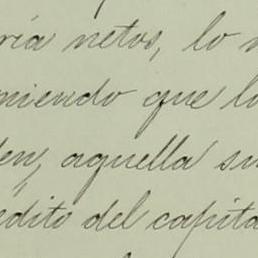 ría netos, lo
miendo que l
den, aquella su
édito del capita